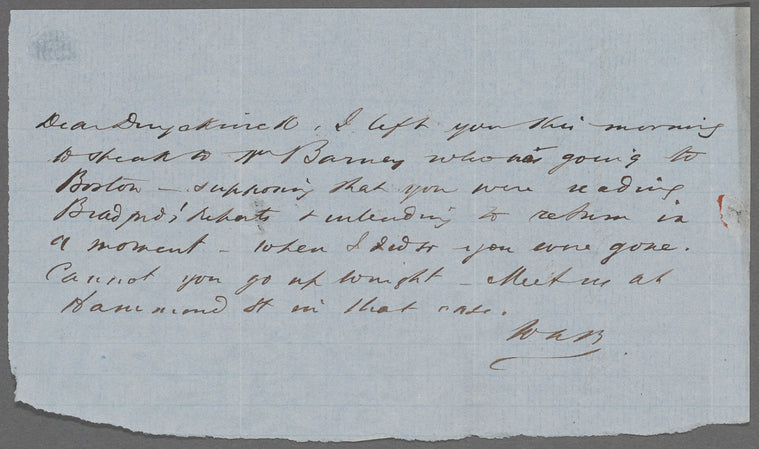 Dear Duyckinck, I left you this morning
to speak to Mr Barney who was going to
Boston – supposing that you were reading
Bradford's Reports & intending to return in
a moment – when I did so you were gone.
Cannot you go up tonight – Meet us at
Hammond St in that case.
WAB